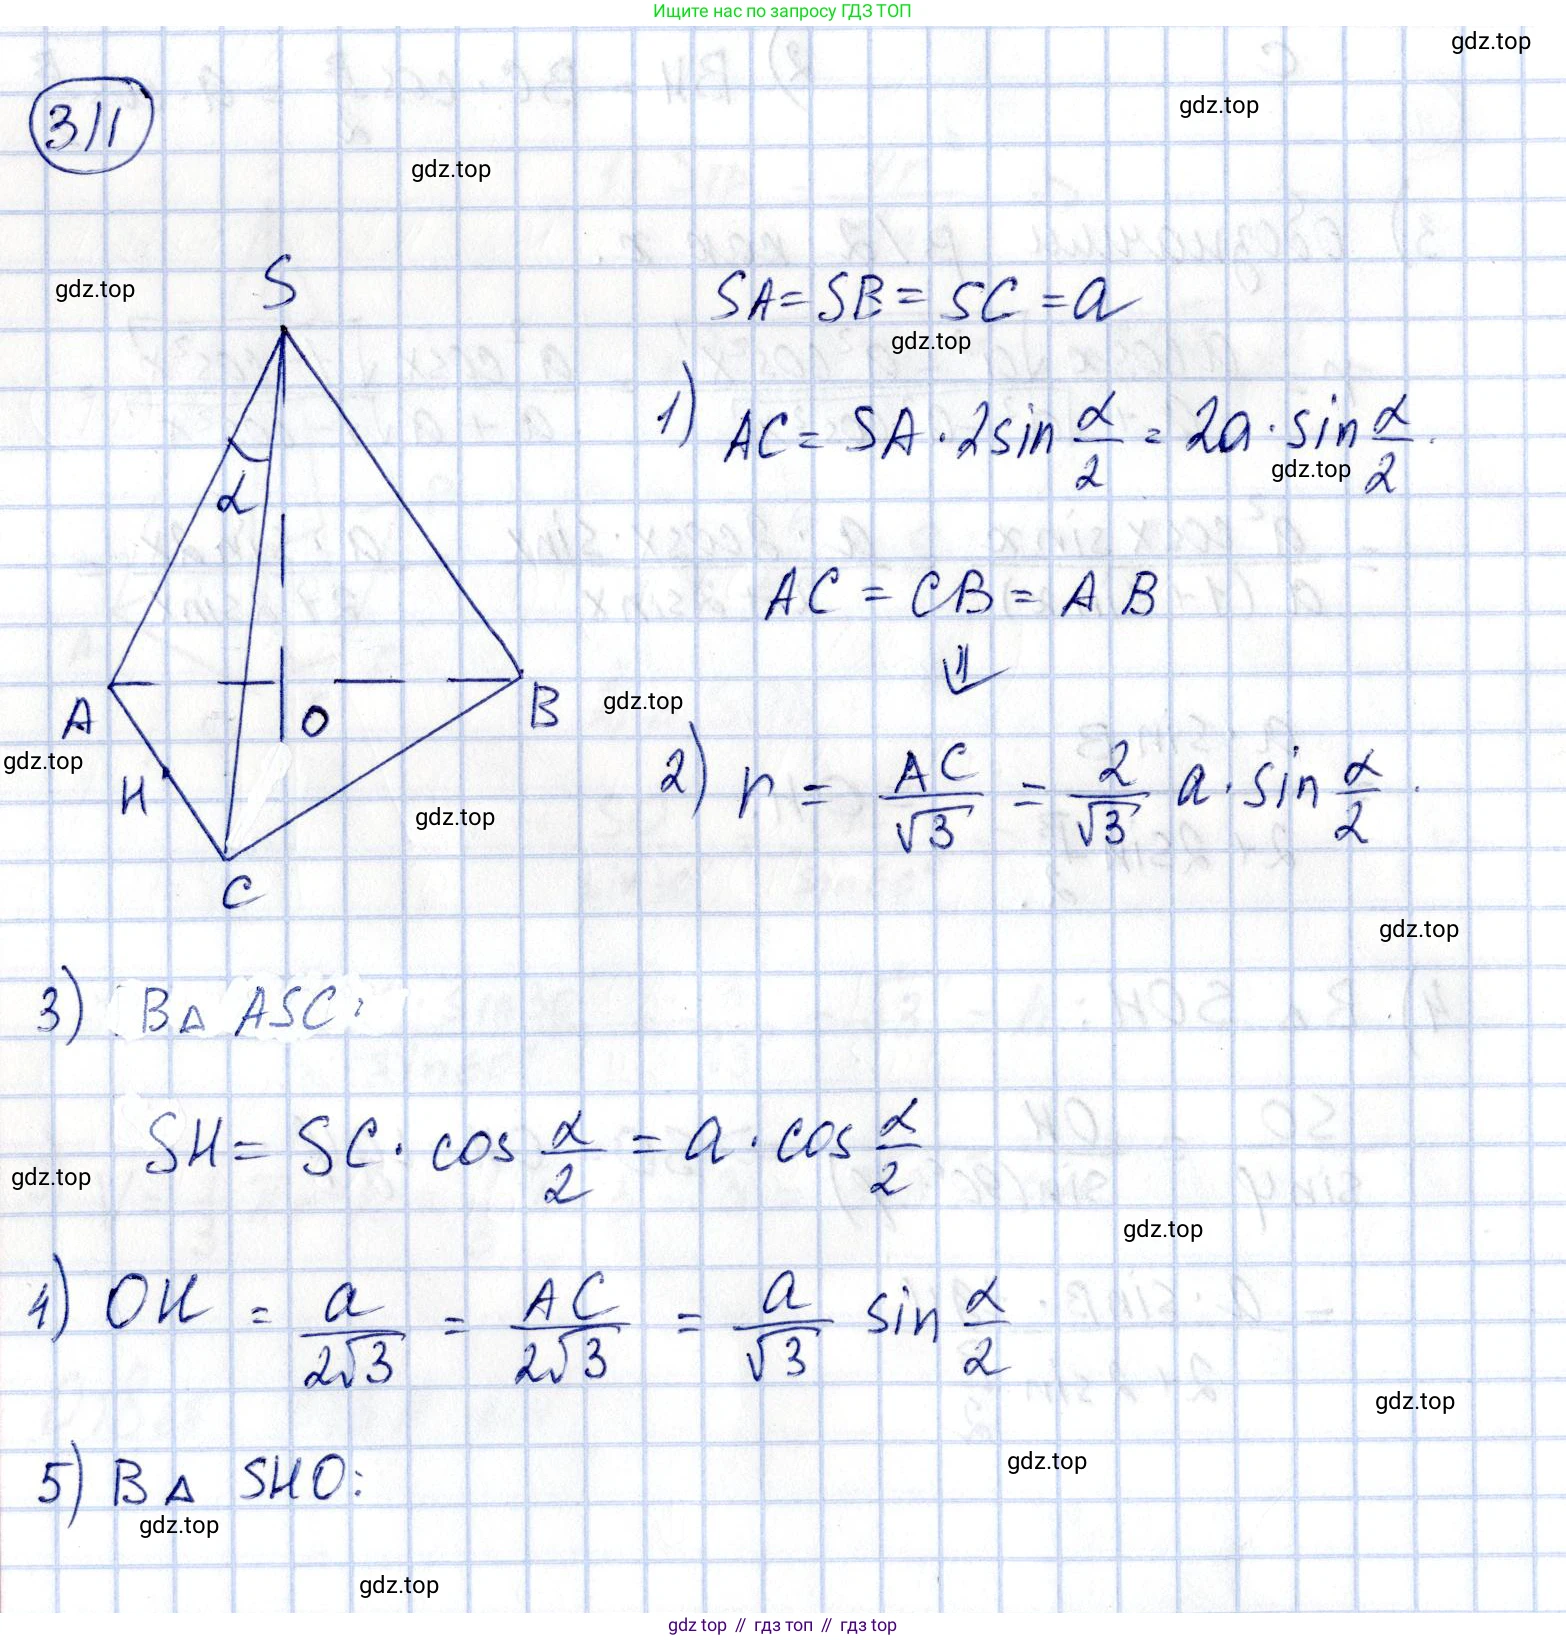 Ищите нас по запросу ГДЗ ТОП
gdz.top
gdz.top
311
gdz.top
S
gdz.top
SA = SB = SC = a
gdz.top
1) AC = SA · 2sin α/2 = 2a · sin α/2.
gdz.top
α
AC = CB = AB
⇓
A O B
gdz.top
gdz.top
H
2) r = AC/√3 = 2/√3 a · sin α/2.
gdz.top
C
gdz.top
3) В △ ASC:
SH = SC · cos α/2 = a · cos α/2
gdz.top
gdz.top
4) OH = a/2√3 = AC/2√3 = a/√3 sin α/2
gdz.top
gdz.top
5) В △ SHO:
gdz.top
gdz.top
gdz top // гдз топ // гдз top